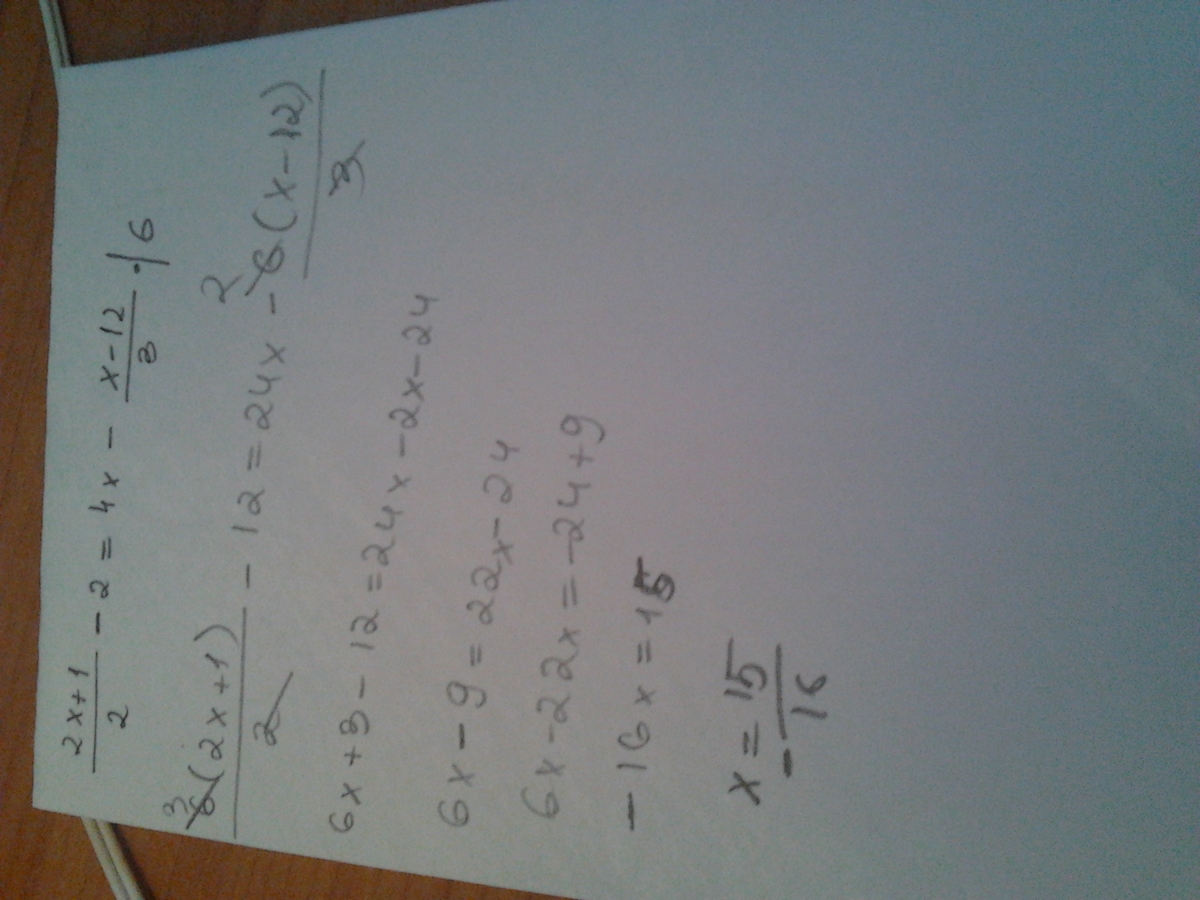 (2x+1)/2 - 2 = 4x - (x-12)/3 ·/6
3 6(2x+1)/2 - 12 = 24x - 2 6(x-12)/3
6x+3-12=24x-2x-24
6x-9=22x-24
6x-22x=-24+9
-16x=15
x=15/-16